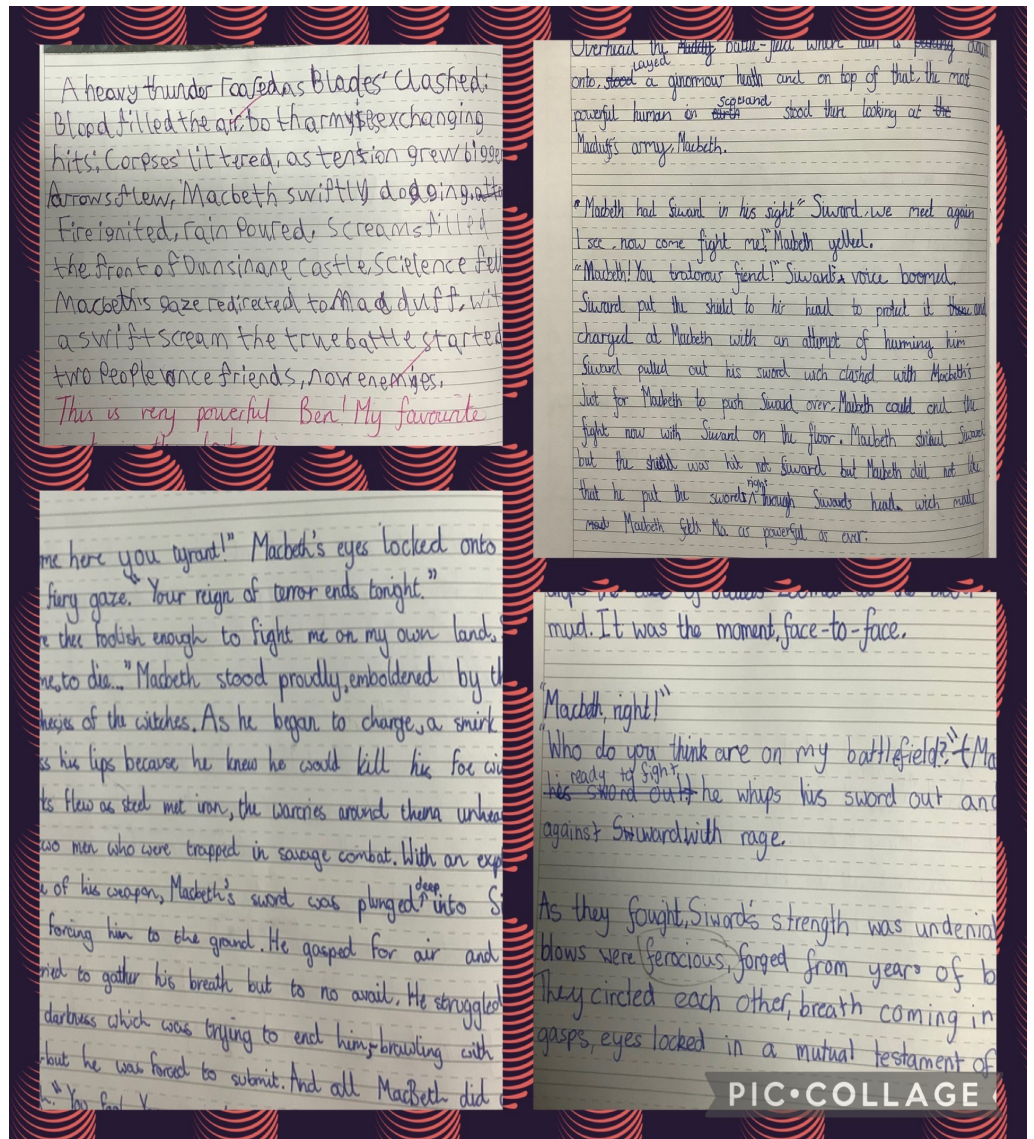 A heavy thunder roared as Blades' Clashed.
Blood filled the air, both armys exchanging
hits, Corpses' littered, as tension grew bigge
Arrows flew, Macbeth swiftly dodging.
Fire ignited, rain Poured, Screams filled
the front of Dunsinane Castle. Scielence fell
Macbeth's gaze redirected to Mad duff, wit
a swift scream the true battle started
two People once friends, now enemies.
This is very powerful Ben! My favourite
Overhead the battle-field when rain is
onto, stood layed a ginormour heath and on top of that, the most
powerful human on Scotland stood there looking at the
Macduff's army, Macbeth.
"Macbeth had Siward in his sight" Siward, we meet again
I see, now come fight me!" Macbeth yelled.
"Macbeth! You traitorous fiend!" Siward's voice boomed.
Siward put the shield to his head to protect it and
charged at Macbeth with an attempt of harming him
Siward pulled out his sword wich clashed with Macbeth's
Just for Macbeth to push Siward over. Macbeth could end the
fight now with Siward on the floor. Macbeth striked Siward
but the shield was hit not Siward but Macbeth did not like
that he put the swords right through Siwards head. wich made
Macbeth as powerful as ever.
me here you tyrant!" Macbeth's eyes locked onto
fiery gaze. "Your reign of terror ends tonight."
e thee foolish enough to fight me on my own land,
me, to die..." Macbeth stood proudly, emboldened by th
hecies of the witches. As he began to charge, a smirk
ss his lips because he knew he would kill his foe wi
ts flew as steel met iron, the warries around them unhea
wo men who were trapped in savage combat. With an exp
of his weapon, Macbeth's sword was plunged deep into S
forcing him to the ground. He gasped for air and
ried to gather his breath but to no avail. He struggled
darkness which was trying to end him, brawling with
but he was forced to submit. And all MacBeth did
mud. It was the moment, face-to-face.
"Macbeth, right!"
"Who do you think are on my battlefield?" (Ma
his sword out, ready to fight, he whups his sword out and
against Siward with rage.
As they fought, Siward's strength was undenial
blows were ferocious, forged from years of b
They circled each other, breath coming in
gasps, eyes locked in a mutual testament of
PIC•COLLAGE